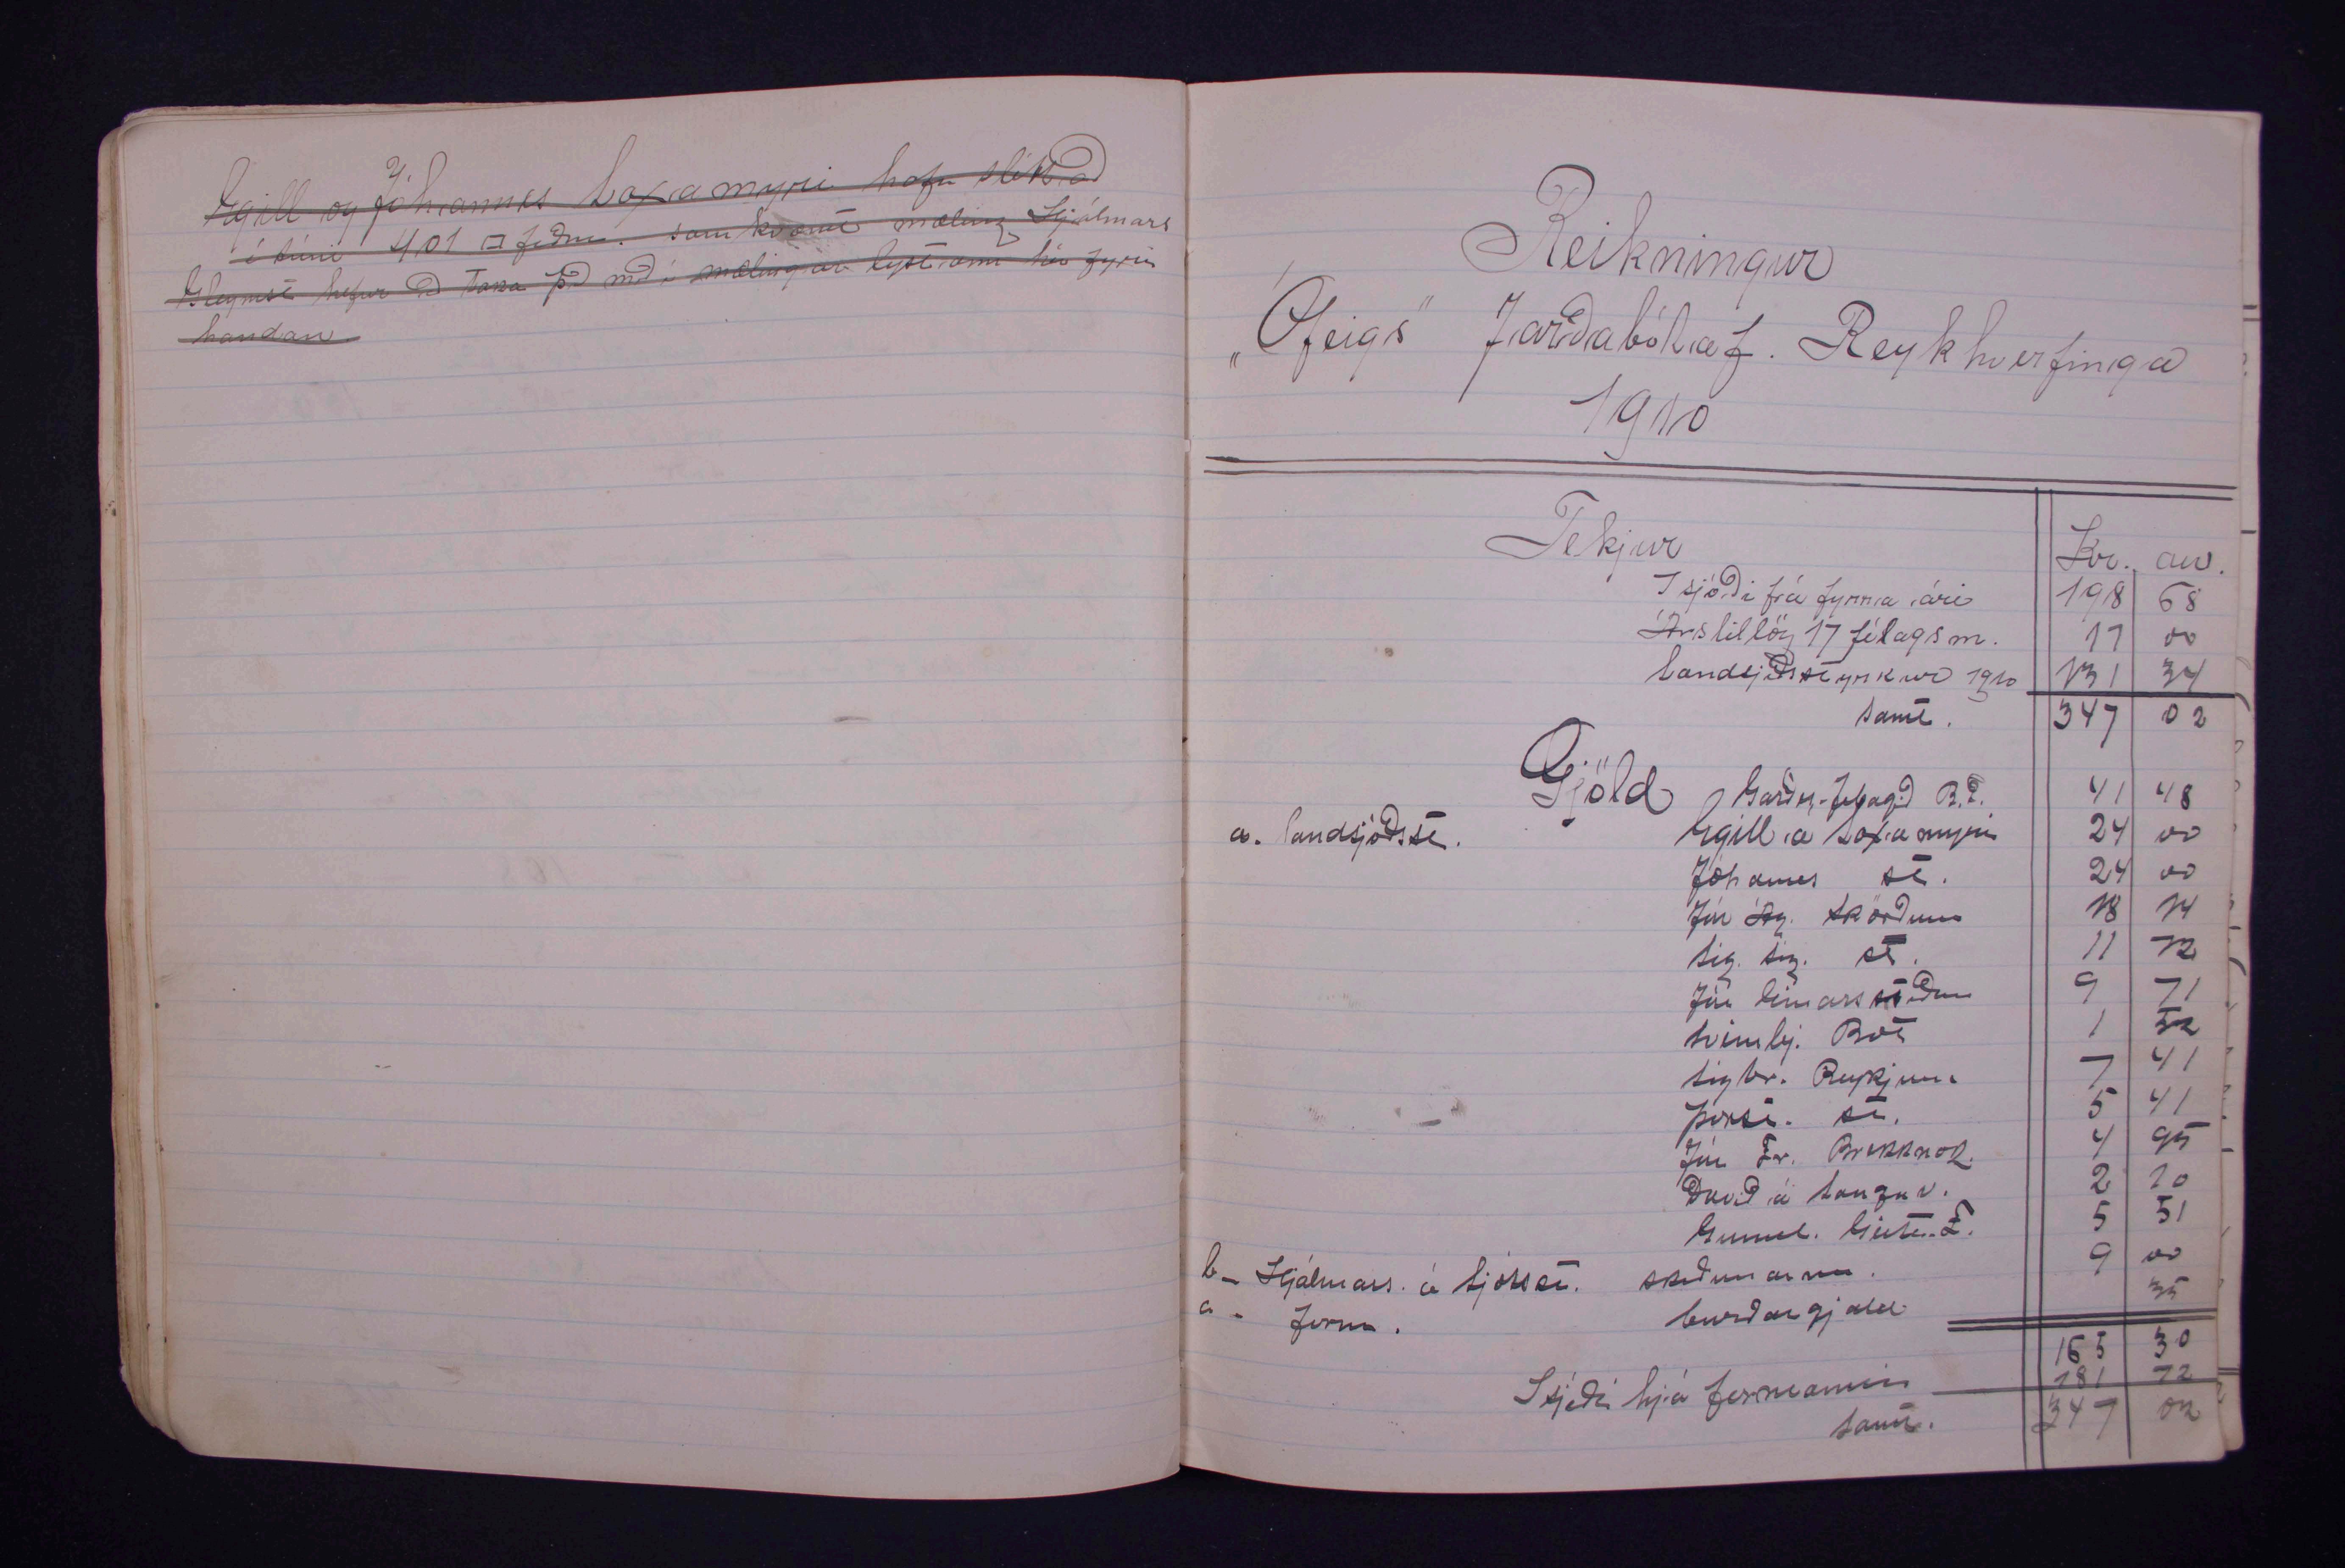 Egill og Jóhannes Laxamýri hafa sléttað
í túni 401 □ faðm. samkvæmt mæling Hjálmars
Gleymst hefur að taka það með í mælingar lystanum hér fyrir
handan
Reikningur
„Ófeigs" Jarðabótaf. Reykhverfinga
1910
Tekjur Kr. au.
Í sjóði frá fyrra ári 198 68
Árstillög 17 félagsm. 17 00
Landsjóðsstyrkur 1910 131 34
Samt. 347 02
Gjöld Garðr.-félagið R.h. 41 48
a. landsjóðsst. Egill á Laxamýri 24 00
Jóhannes st. 24 00
Jón Ág. Skörðum 18 14
Sig. Sig. st. 11 72
Jón Einarsstöðum 9 71
Sveinbj. Bót 1 52
Sigtr. Reykjum 7 41
Þorst. st. 5 41
Jón Fr. Brekknak. 4 95
Davíð á Langav. 2 10
Gunnl. Geitaf. 5 51
b - Hjálmars. á Ljótsst. skoðunarm. 9 00
a - form. burðargjald 35
165 30
Í sjóði hjá formanni 181 72
Samt. 347 02